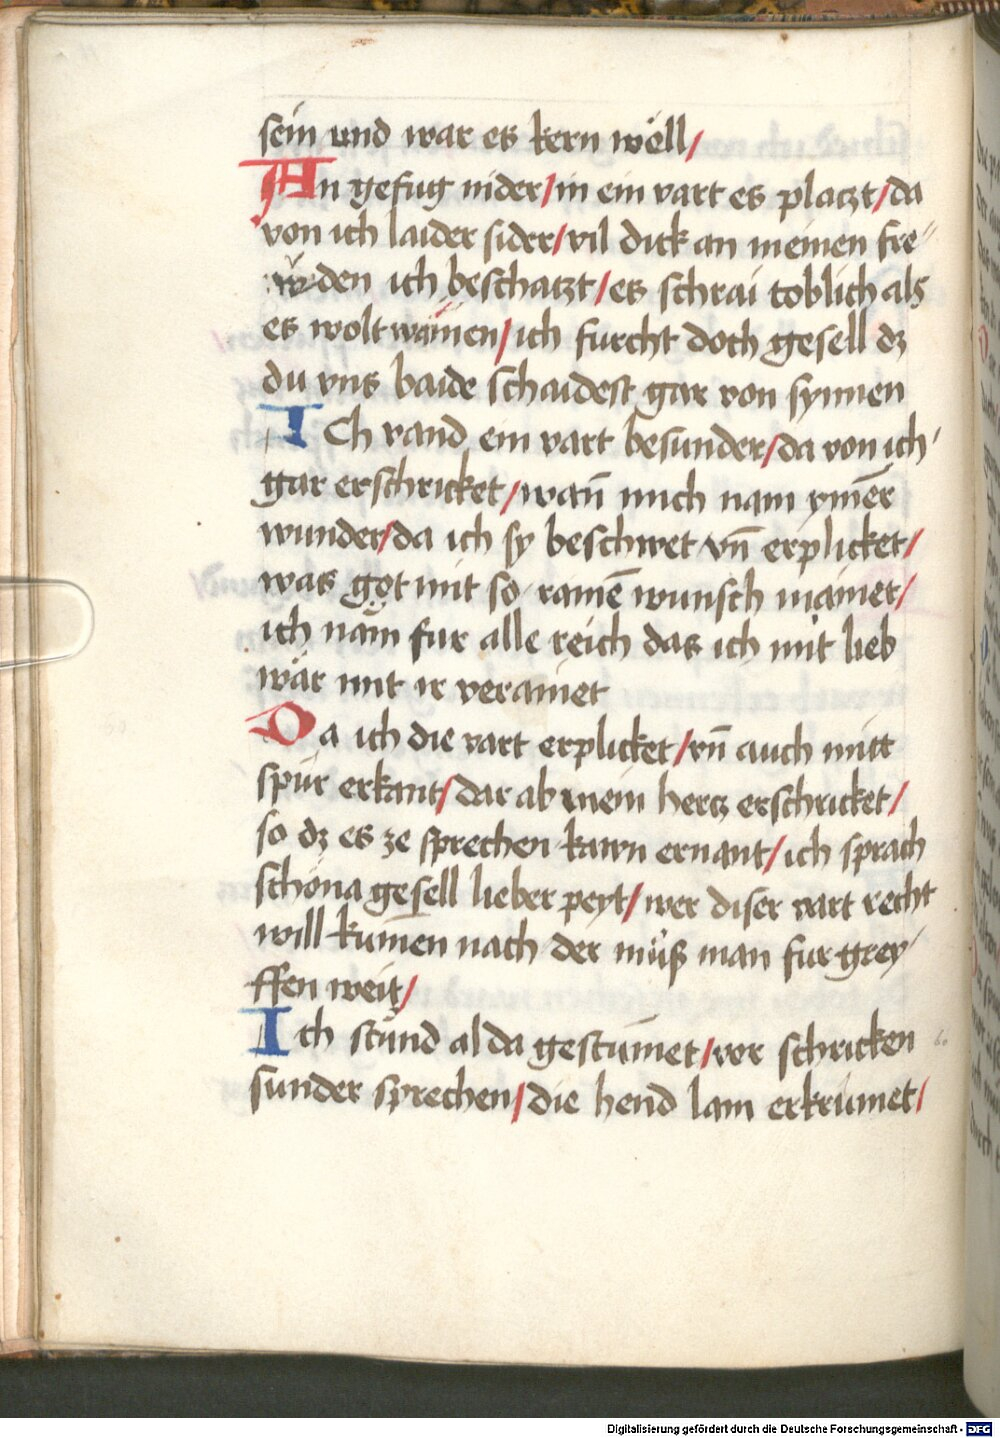 sein und war es kern wöll/
An gefug nider/in ein vart es placzt/da
von ich laider sider/vil dick an meinen fre"
wͤden ich beschatzt/es schrai toblich als
es wolt wäinen/ich furcht doch gesell dz
du vns baide schaidest gar von synnen
ICh vand ein vart besunder/da von ich'
gar erschricket/wan̄ mich nam ym̄er
wunder/da ich sy beschwet vn̄ erplicket/
was got mit so rainē wunsch mainet/
ich näm fur alle reich das ich mit lieb
wär mit ir verainet
Da ich die vart erplicket/vn̄ auch mitt
spür erkant/dar ab mein hercz erschricket/
so dz es ze sprechen kawn ernant/ich sprach
schöna gesell lieber peyt/wer diser vart recht
will kum̄en nach der müß man fur grey'
ffen weit/
Ich stůnd al da gestümet/vor schricken
sunder sprechen/die hend lam erkrümet/
Digitalisierung gefördert durch die Deutsche Forschungsgemeinschaft - DFG